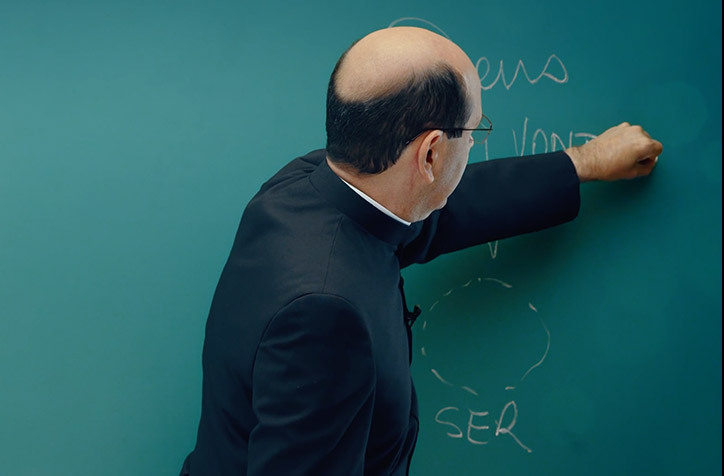 Deus
VONT
SER